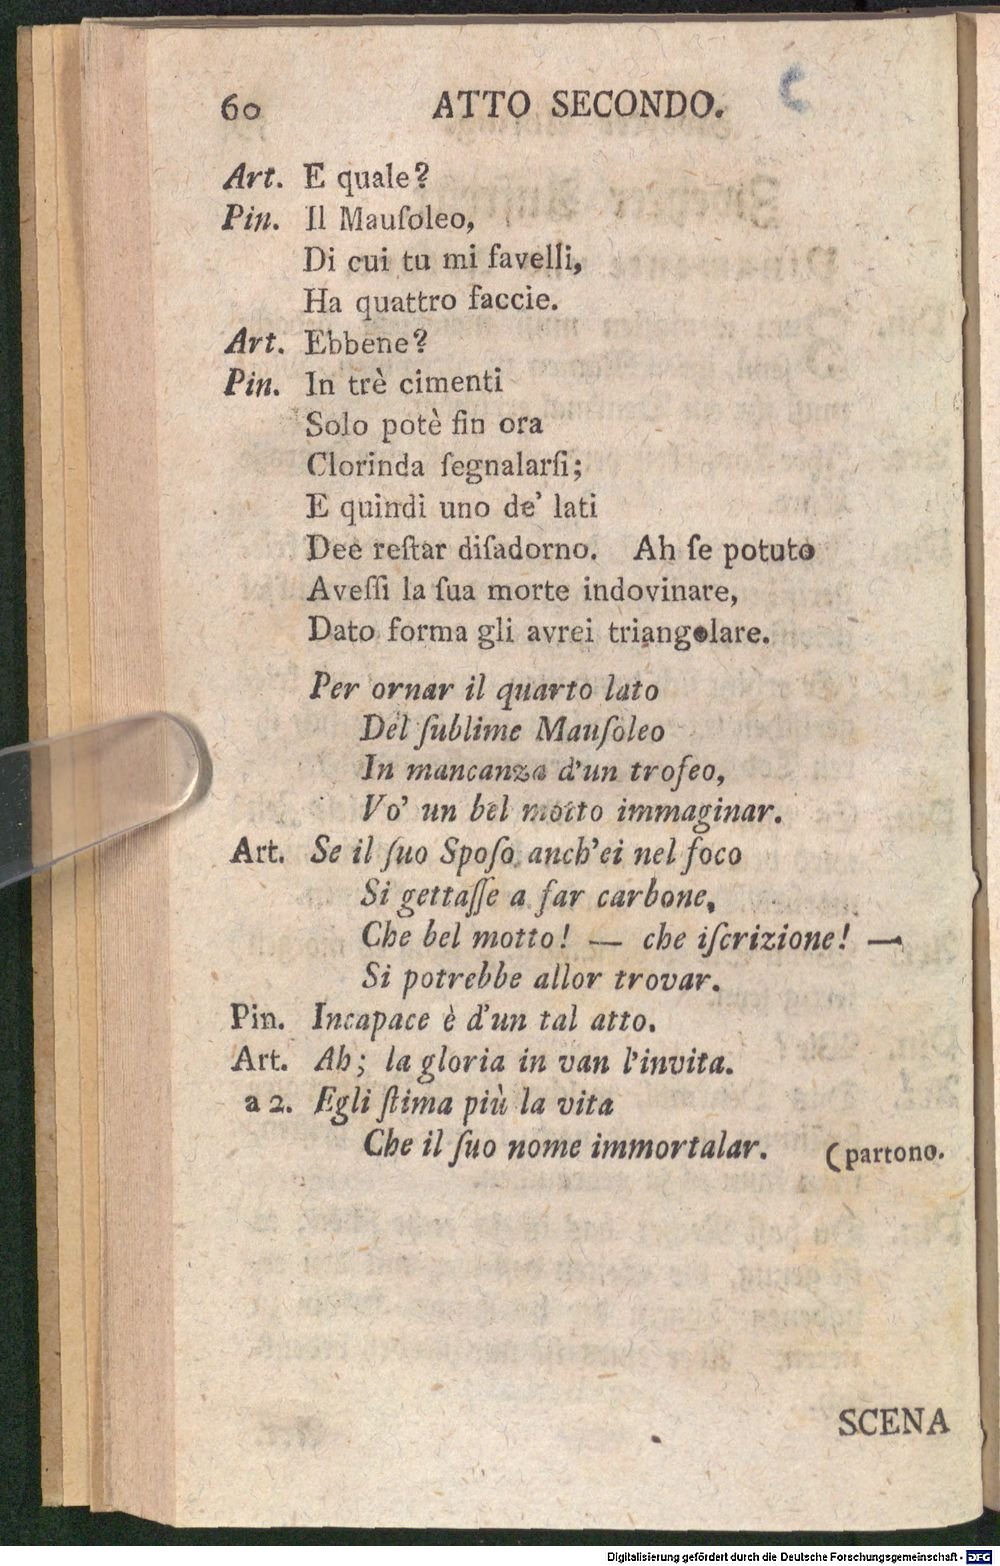 60 ATTO SECONDO.
Art. E quale?
Pin. Il Mauſoleo,
Di cui tu mi favelli,
Ha quattro faccie.
Art. Ebbene?
Pin. In trè cimenti
Solo potè fin ora
Clorinda ſegnalarſi;
E quindi uno de' lati
Dee reſtar diſadorno. Ah ſe potuto
Aveſſi la ſua morte indovinare,
Dato forma gli avrei triangolare.
Per ornar il quarto lato
Del ſublime Mauſoleo
In mancanza d'un trofeo,
Vo' un bel motto immaginar.
Art. Se il ſuo Spoſo anch'ei nel foco
Si gettaſſe a far carbone,
Che bel motto! — che iſcrizione! —
Si potrebbe allor trovar.
Pin. Incapace è d'un tal atto.
Art. Ah; la gloria in van l'invita.
a 2. Egli ſtima più la vita
Che il ſuo nome immortalar. (partono.
SCENA
Digitalisierung gefördert durch die Deutsche Forschungsgemeinschaft - DFG